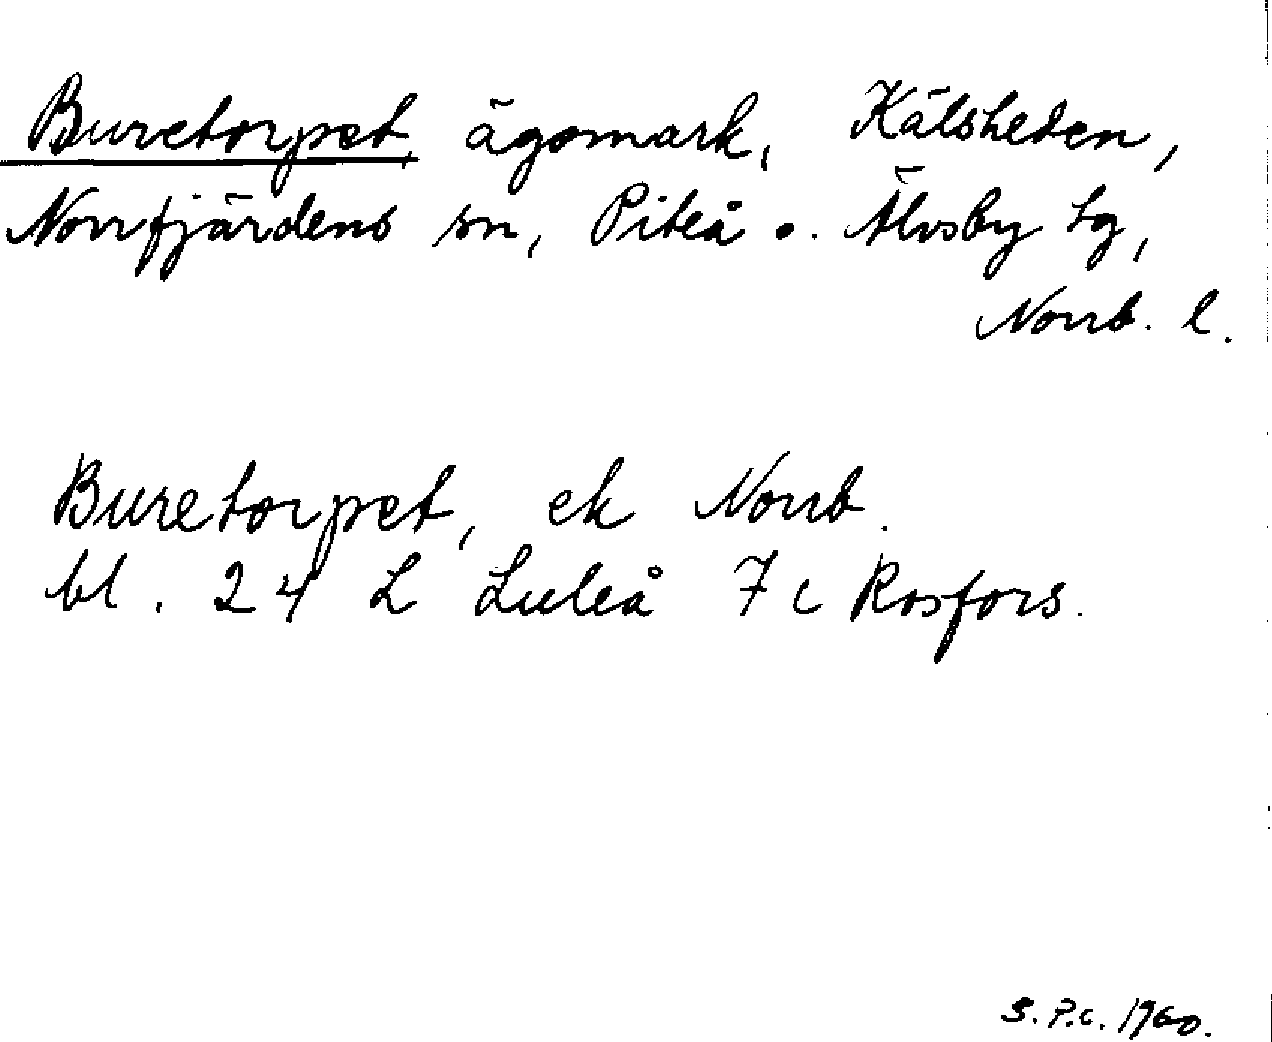 Buretorpet, ägomark, Kälsheden,
Norrfjärdens sn, Piteå o. Älvsby tg,
Norrb. l.
Buretorpet, ek Norrb.
bl. 24 L Luleå 7c Rosfors.
S.P.C. 1960.